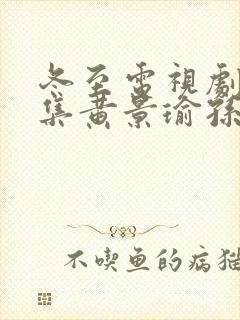 冬至電視劇
集黄景瑜孫
不喫鱼的病猫